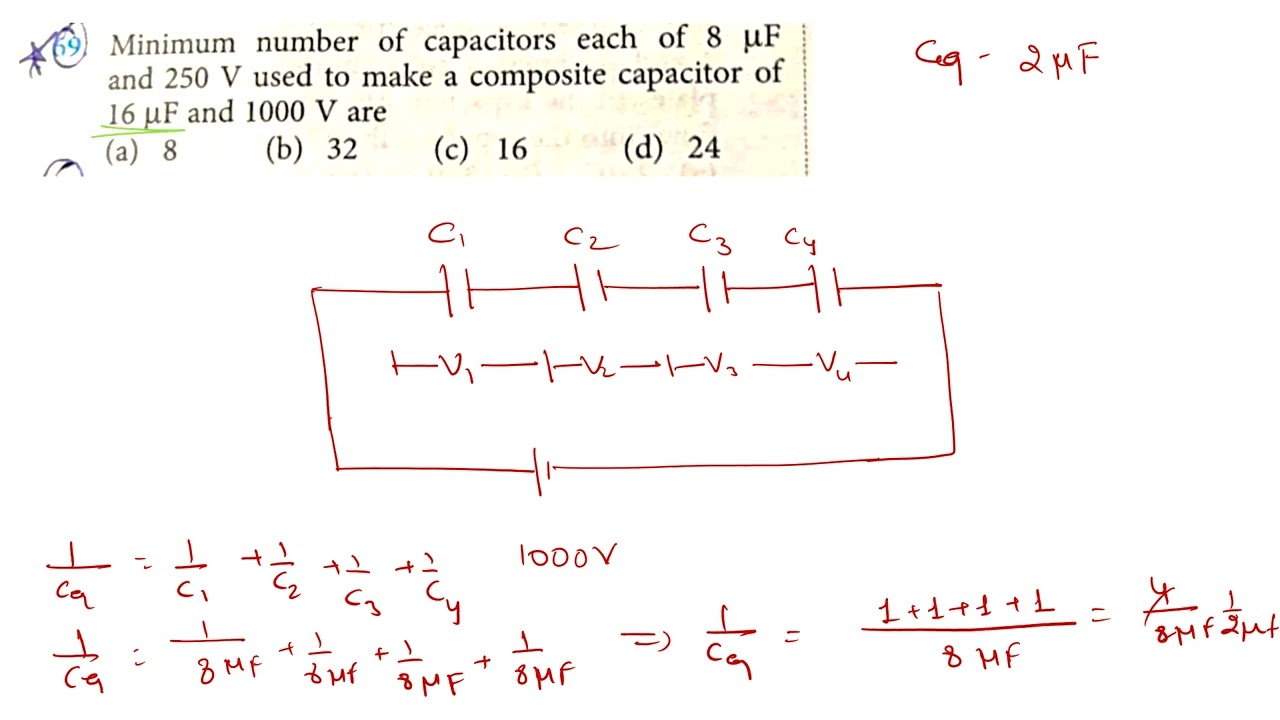 69 Minimum number of capacitors each of 8 μF
and 250 V used to make a composite capacitor of
16 μF and 1000 V are
(a) 8 (b) 32 (c) 16 (d) 24
Ceq - 2 μF
C1 C2 C3 C4
V1 V2 V3 V4
1/Ceq = 1/C1 + 1/C2 + 1/C3 + 1/C4 1000V
1/Ceq = 1/8μF + 1/8μF + 1/8μF + 1/8μF ⇒ 1/Ceq = 1+1+1+1/8 μF = 4/8μF 1/2μF